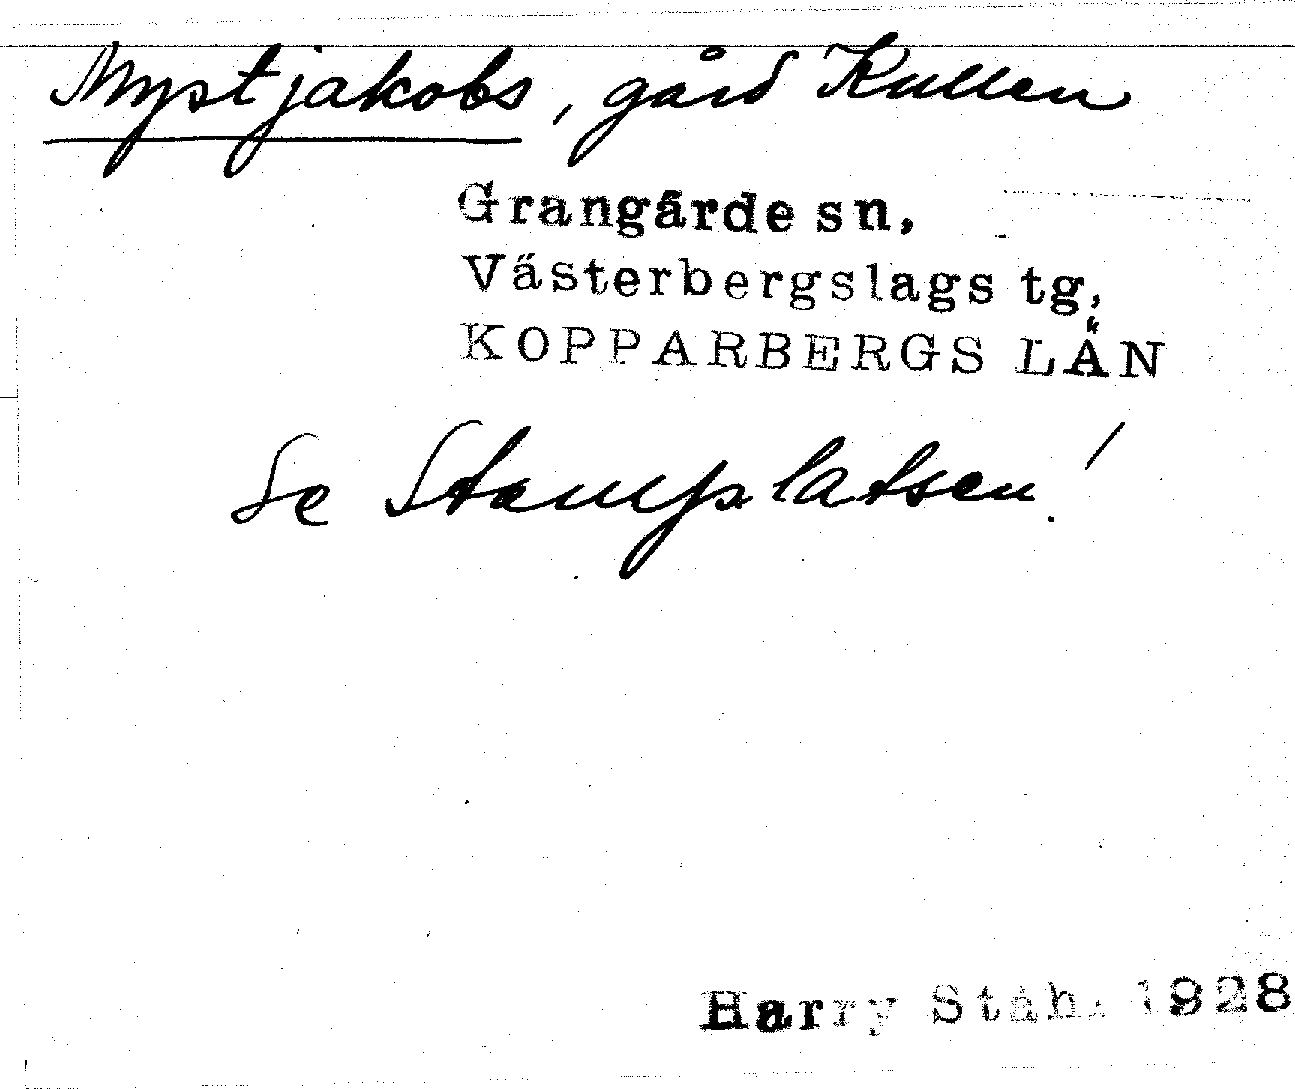 Nystjakobs, gård Kullen
Grangärde sn,
Västerbergslags tg,
KOPPARBERGS LÄN
Se Stamplatsen!
Harry Ståhl 1928